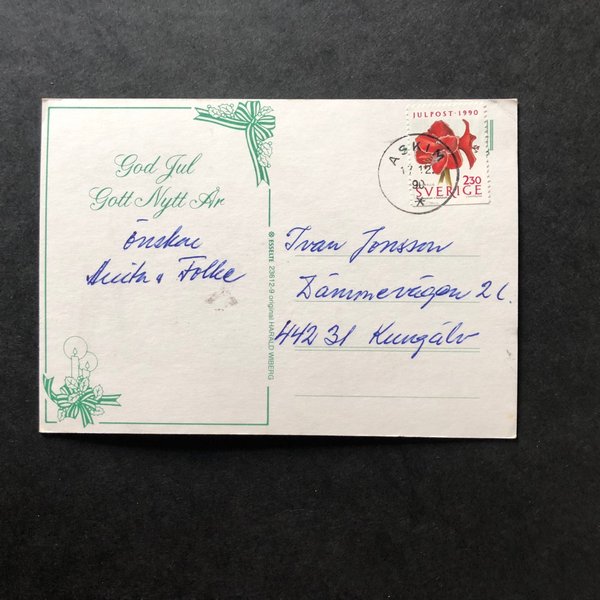 God Jul
Gott Nytt År
önskar
Anita & Folke
ESSELTE 23612-9 original HARALD WIBERG
JULPOST·1990
2.30
SVERIGE
ASKIM
17 12
90
Ivan Jonsson
Dämmevägen 2 C.
442 31 Kungälv